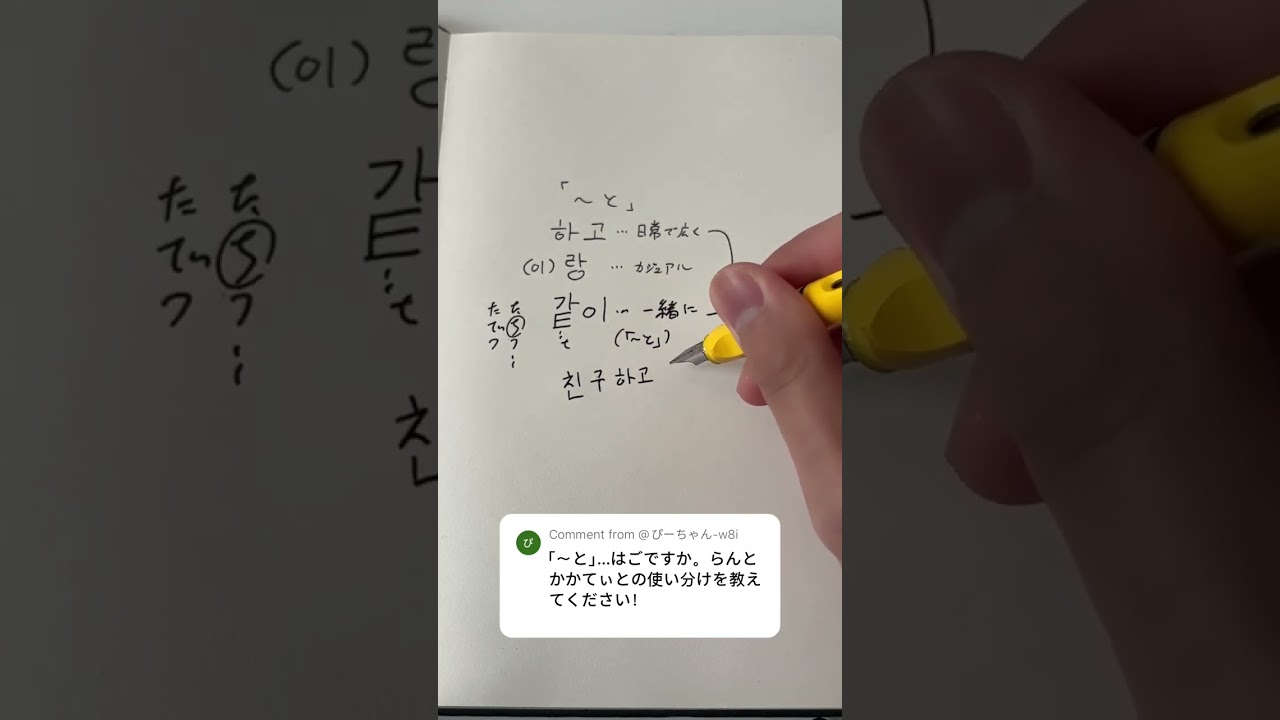 「~と」
하고 … 日常で広く
(이)랑 … カジュアル
た た
てぃ ち
つ つ
같이 … 一緒に
t (「~と」)
친구하고
ぴ Comment from @ぴーちゃん-w8i
「~と」...はごですか。らんと
かかてぃとの使い分けを教え
てください!